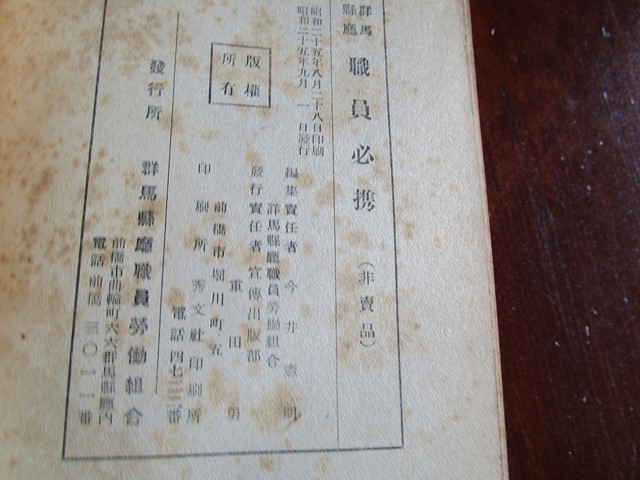 群馬縣廳 職員必携（非賣品）
昭和二十五年八月二十八日印刷
昭和二十五年九月一日發行
編集責任者 今井憲明
群馬縣廳職員労働組合
發行責任者 宣傳出版部
重田勇
前橋市堀川町五
印刷所 秀文社印刷所
電話四七二二番
版權所有
發行所 群馬縣廳職員労働組合
前橋市曲輪町六六群馬縣廳内
電話前橋三〇一一番